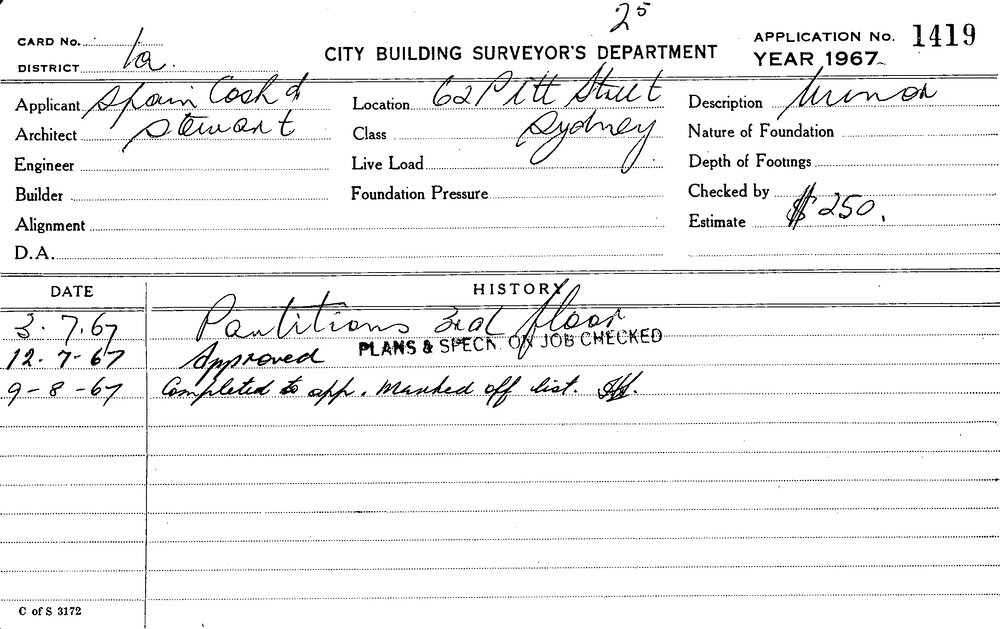 25
CARD No.
DISTRICT 1a.
CITY BUILDING SURVEYOR'S DEPARTMENT
APPLICATION No. 1419
YEAR 1967
Applicant Spain Cosh &
Architect Stewart
Engineer
Builder
Alignment
D.A.
Location 62 Pitt Street
Class Sydney
Live Load
Foundation Pressure
Description Minor
Nature of Foundation
Depth of Footings
Checked by
Estimate $250.
DATE HISTORY
3.7.67 Partitions 3rd floor
12.7-67 Approved PLANS & SPECN. ON JOB CHECKED
9-8-67 Completed to app. Marked off list.
C of S 3172